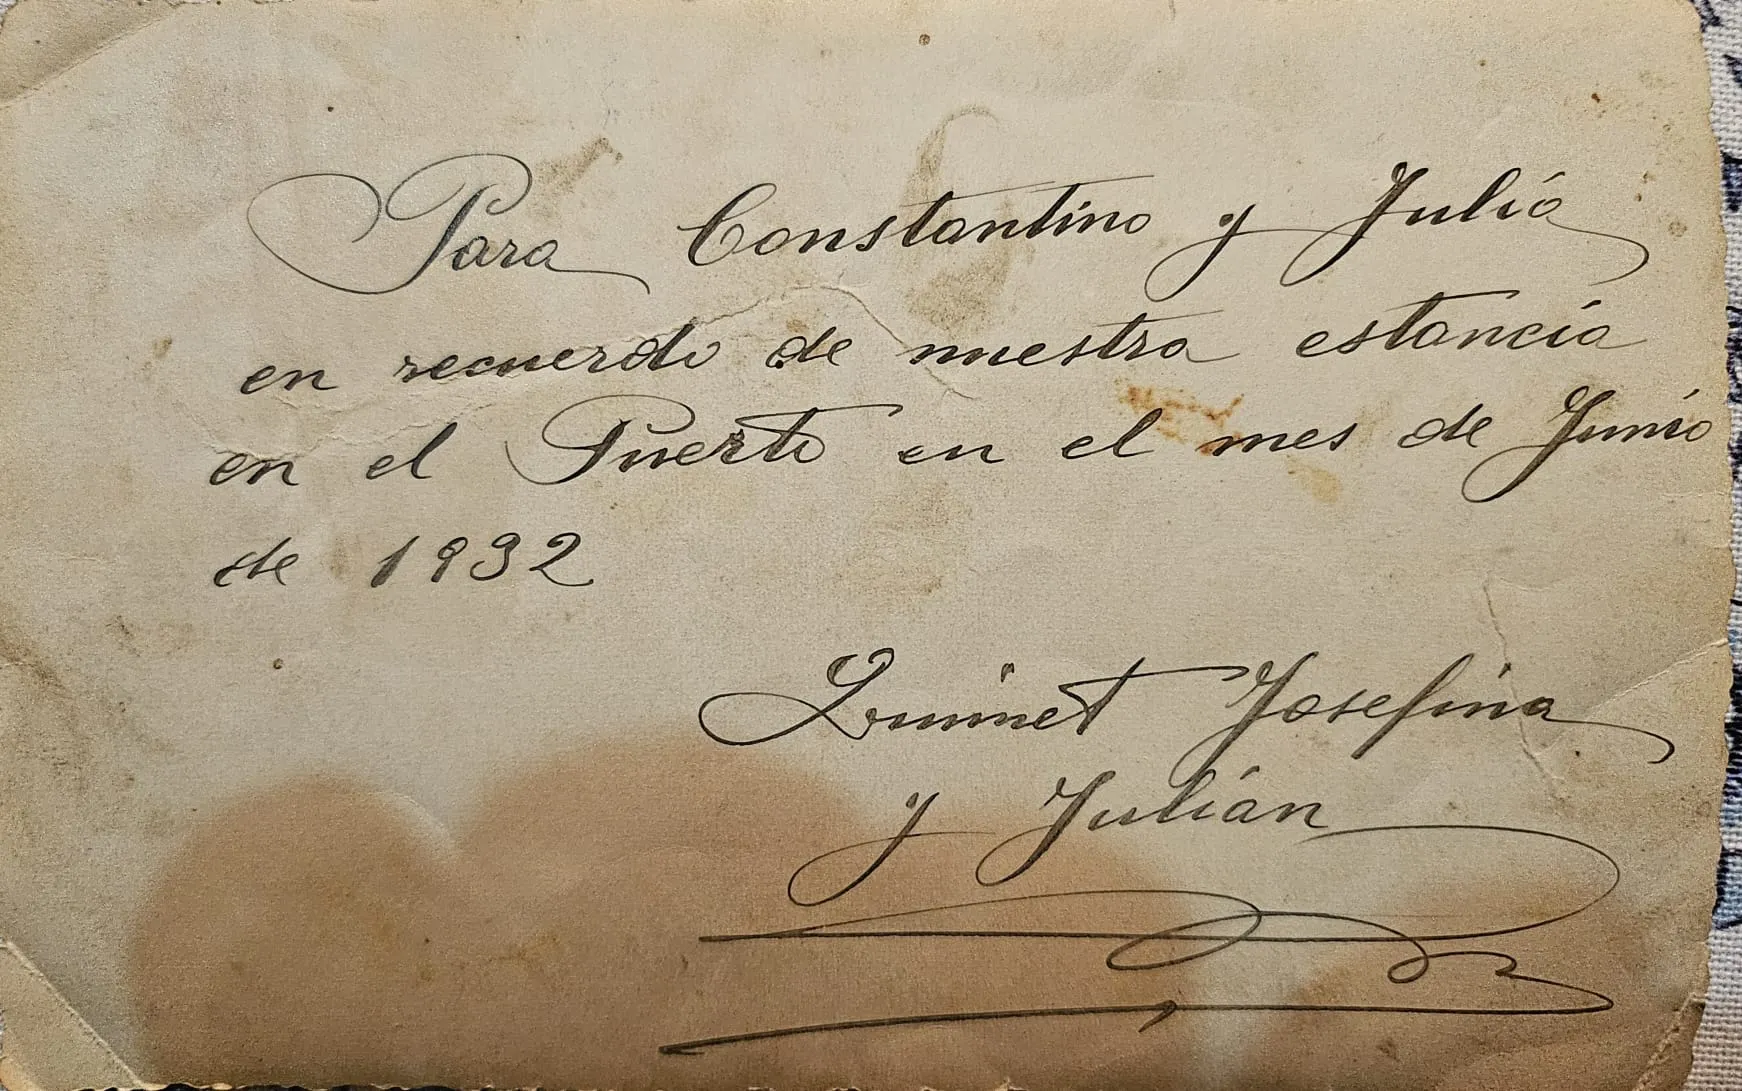 Para Constantino y Julia
en recuerdo de nuestra estancia
en el Puerto en el mes de Junio
de 1932
Josefina
y Julián